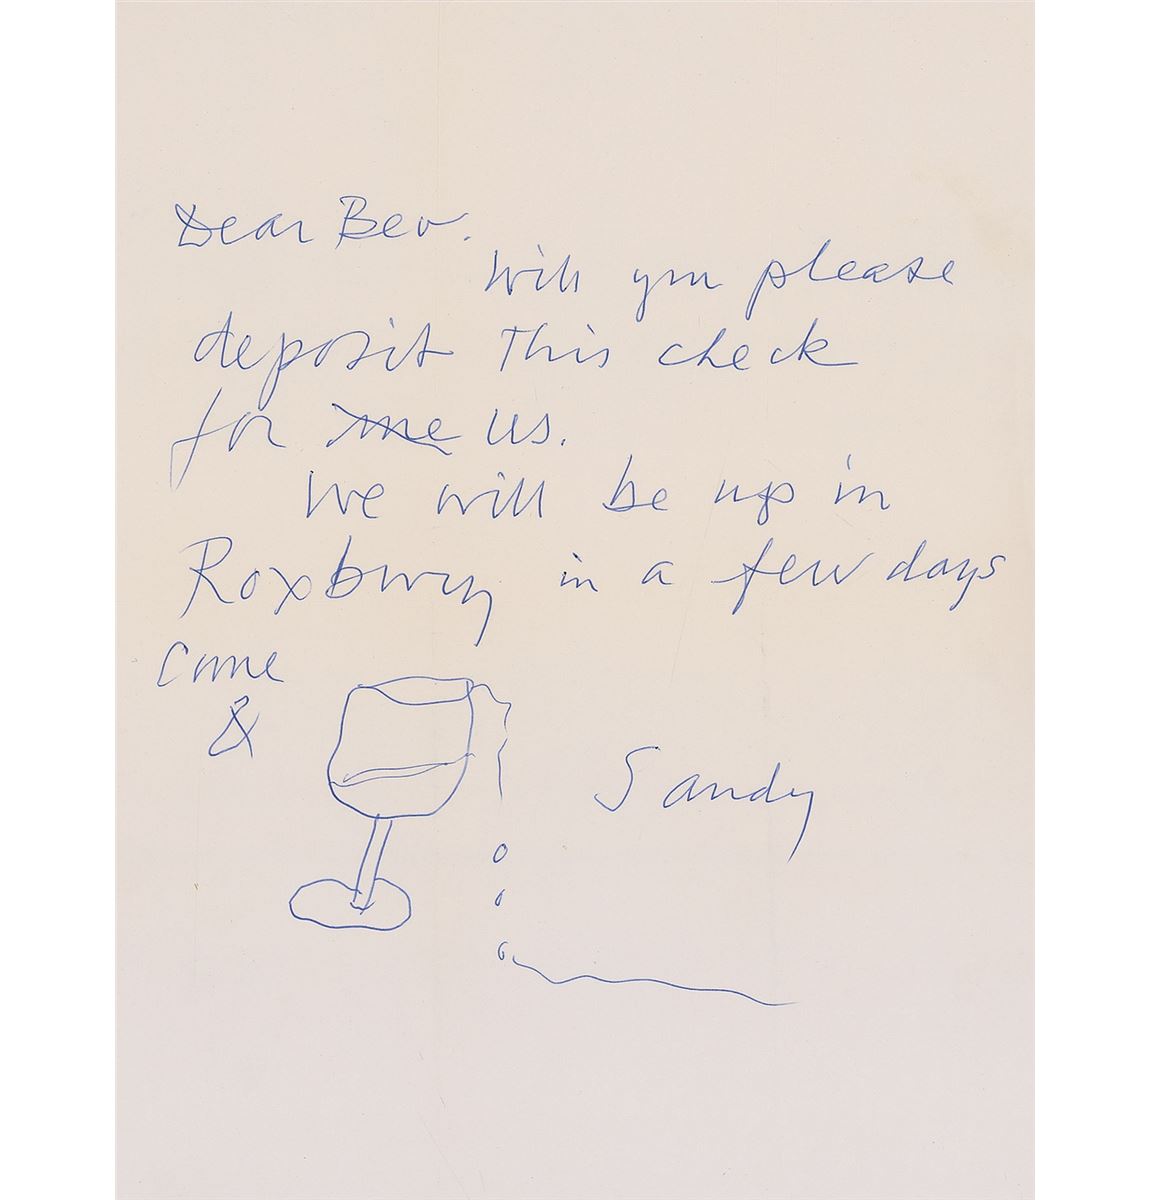 Dear Bev.
Will you please
deposit This check
for me us.
We will be up in
Roxbury in a few days
come
&
Sandy